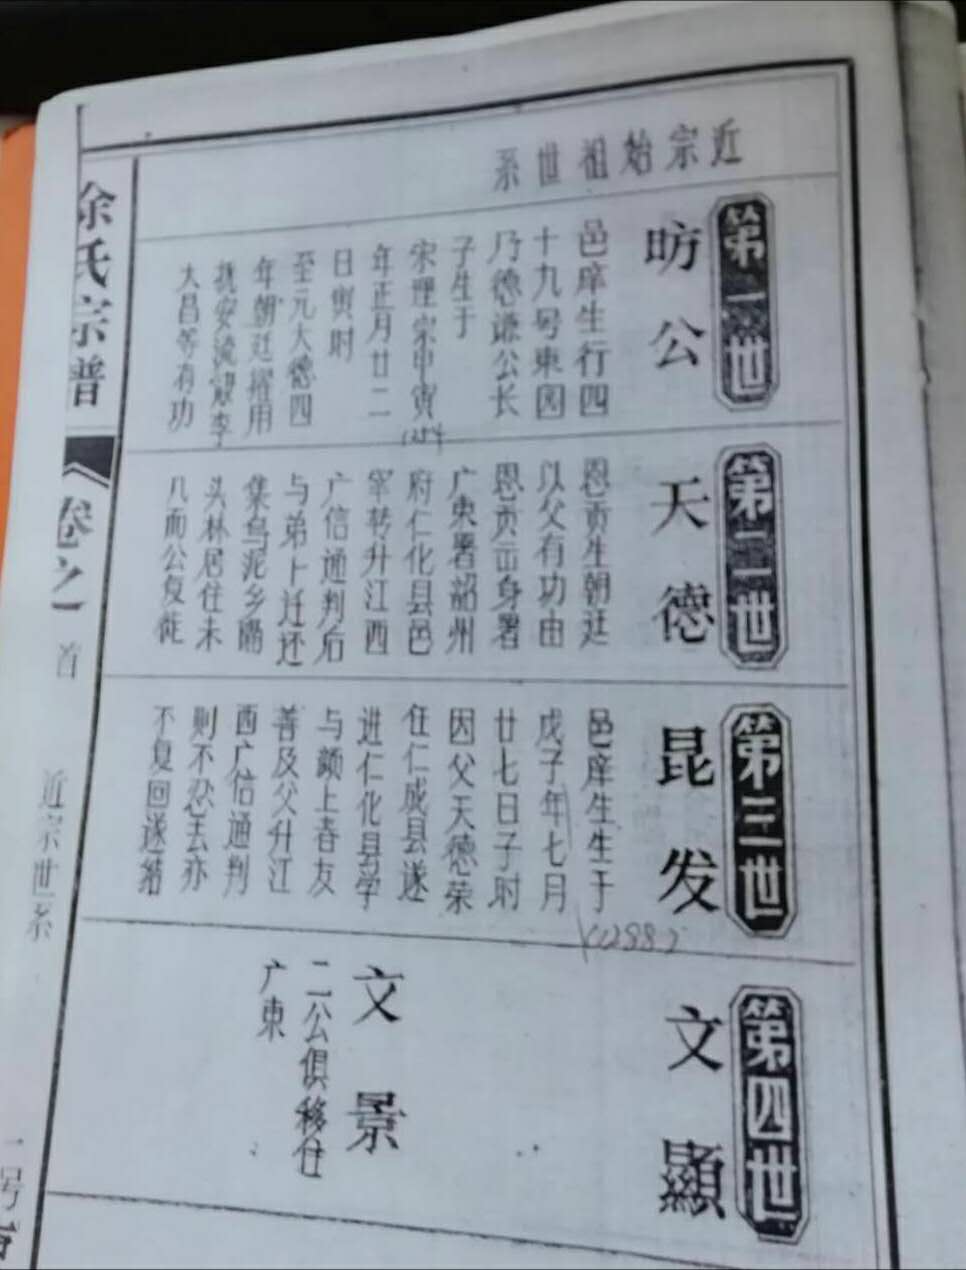 近宗始祖世系
第一世
昉公
邑庠生行四
十九号東园
乃德谦公长
子生于
宋理宗甲寅
年正月廿二
日寅时
至元大德四
年朝廷擢用
抚安流寇李
大昌等有功
1254
第二世
天德
恩贡生朝廷
以父有功由
恩贡出身署
广東署韶州
府仁化县邑
宰转升江西
广信通判后
与弟卜迁还
集乌泥乡隔
头林居住未
几而公复徙
第三世
昆发
邑庠生生于
戊子年七月
廿七日子时
因父天德荣
任仁成县遂
进仁化县学
与颜上春友
善及父升江
西广信通判
则不忍去亦
不复回遂籍
(1288)
第四世
文顯
文景
二公俱移住
广東
徐氏宗普
卷之一
首
近宗世系